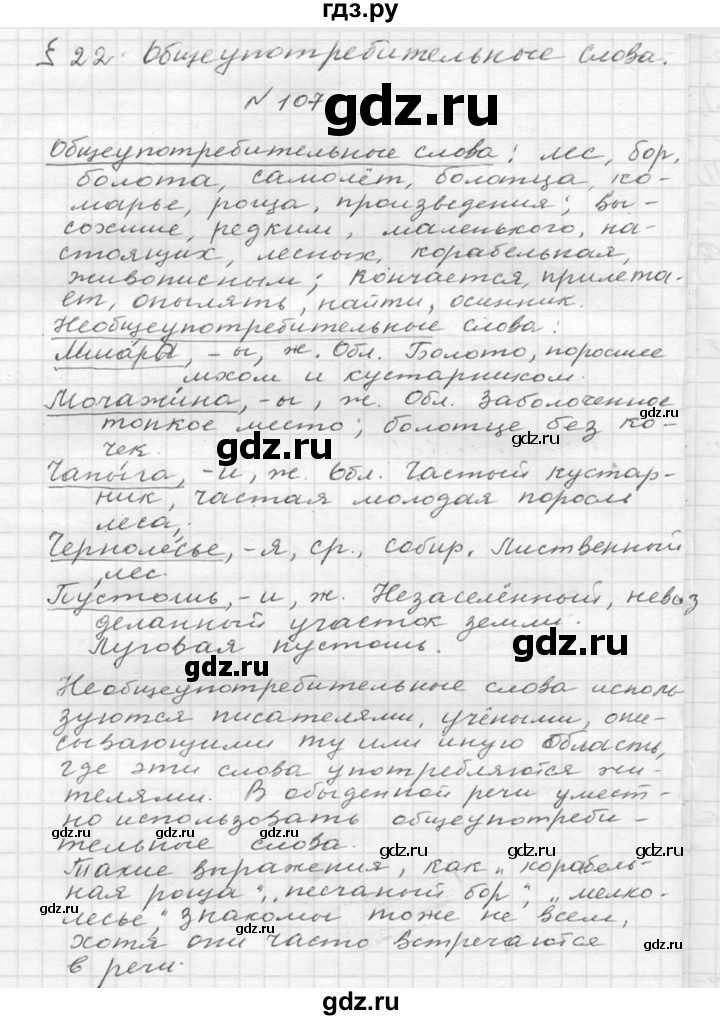 гдз.ру
§ 22. Общеупотребительные слова.
№ 107
gdz.ru
Общеупотребительные слова: лес, бор,
болота, самолёт, болотца, ко-
марье, роща, произведения; вы-
сохшие, редким, маленького, на-
стоящих, лесных, корабельная,
живописным; кончается, прилета-
ет, опылять, найти, осинник.
Необщеупотребительные слова:
Мшары, -ы, ж. Обл. Болото, поросшее
мхом и кустарником.
Мочажина, -ы, ж. Обл. Заболоченное
топкое место; болотце без ко-
чек.
Чапыга, -и, ж. Обл. Частый кустар-
ник, частая молодая поросль
леса.
Чернолесье, -я, ср., собир. Лиственный
лес.
Пустошь, -и, ж. Незаселённый, невоз
деланный участок земли.
Луговая пустошь.
Необщеупотребительные слова исполь
зуются писателями, учёными, опи-
сывающими ту или иную область,
где эти слова употребляются жи-
телями. В обыденной речи умест-
но использовать общеупотреби-
тельные слова.
Такие выражения, как „корабель-
ная роща", „песчаный бор", „мелко-
лесье," знакомы тоже не всем,
хотя они часто встречаются
в речи.
gdz.ru